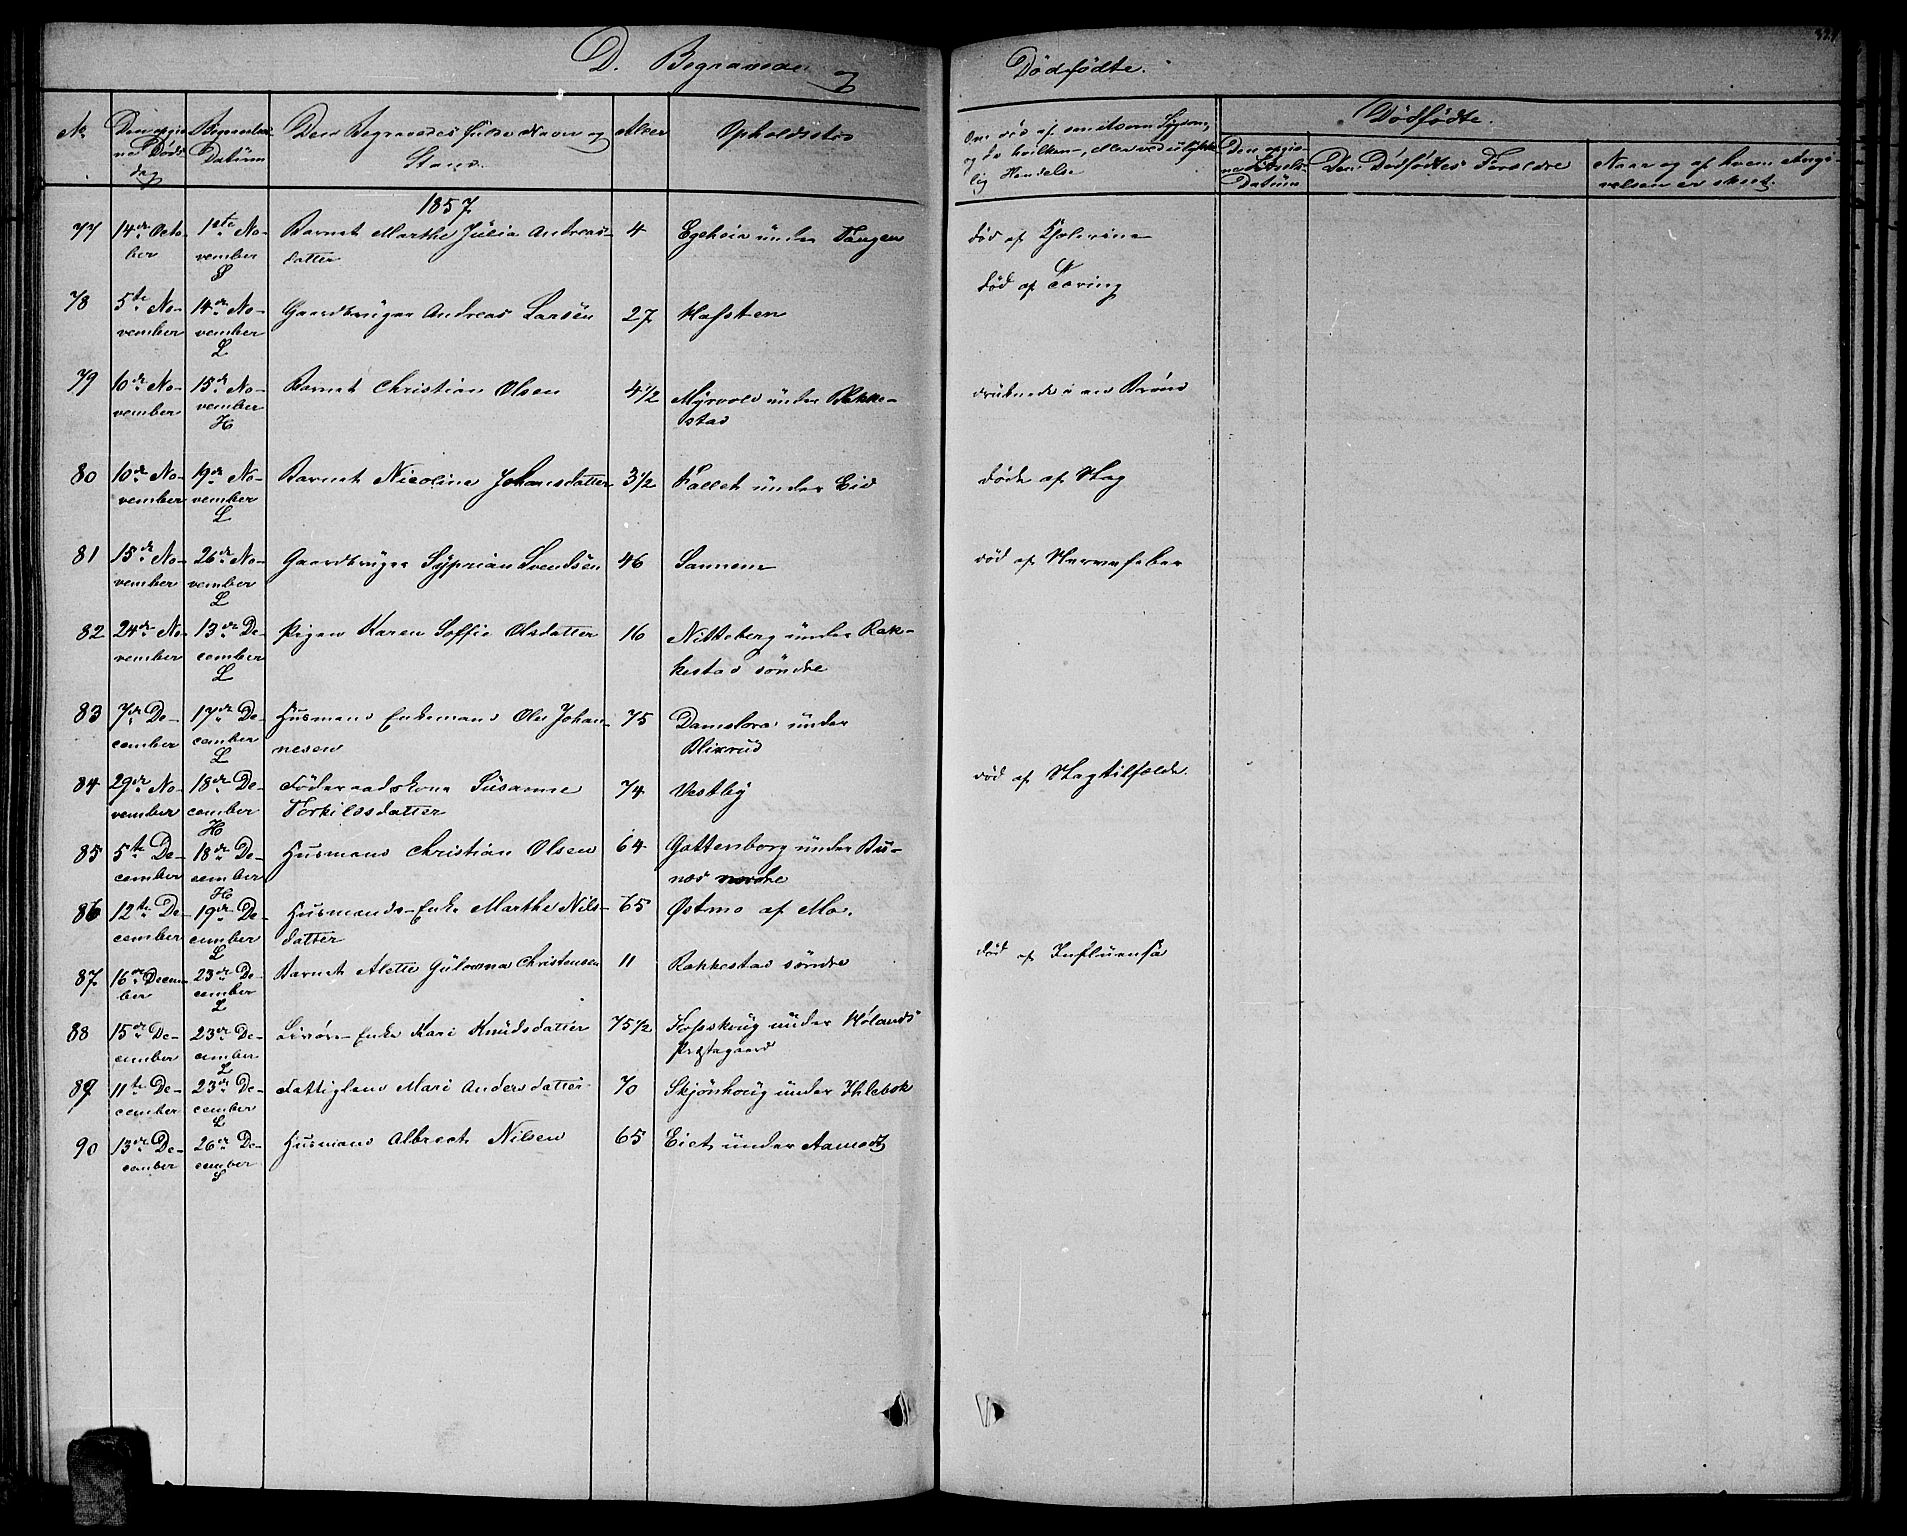 D. Begravede
Dödfödte.
No
Den opgivne Döds dag
Begravelses Datüm
Den Begravedes fülde Navn og Stand.
Alder
Opholdssted
Om död af smitsom Sygdom, og da hvilken, eller ved ulykkelig Hendelse
Dödfödte.
Den opgivne Födsels Datüm
Den Dödfödtes Foreldre
Naar og af hvem Angivelsen er skeet.
1857
77 14de October 1ste November S Barnet Marthe Jülia Andreasdatter 4 Egeheia ünder Tangen död af
78 5te November 14de November L Gaardbrüger Andreas Larsen 27 Hafsten död af Tæring
79 10de November 15de November H Barnet Christian Olsen 4 1/2 Myrvold ünder Rakkestad druknede i en Brönd
80 10de November 19de November L Barnet Nicoline Johansdatter 3 1/2 Fallet ünder Eid döde af Slag
81 15de November 26de November L Gaardbrüger Syprian Svendsen 46 Sannem död af Nervefeber
82 24de November 13de December L Pigen Karen Soffie Olsdatter 16 Nitteberg ünder Rakkestad söndre
83 7de December 17de December L Husmand Enkemand Ole Johannesen 75 ünder Blixrud
84 29de November 18de December H Föderaadskone Susanne Torkildsdatter 74 Vestby död af Slagtilfælde.
85 5te December 18de December H Husmand Christian Olsen 64 Gottenborg ünder Bunæs nordre
86 12te December 19de December L Husmands-Enke Marthe Nilsdatter 65 Østmo af Mo.
87 16de December 23de December L Barnet Alette Gülovna Christensen 11 Rakkestad söndre död af Influensa
88 15de December 23de December L Enke Kari Knüdsdatter 75 1/2 Fosskoug ünder Hölands Præstegaard
89 11te December 23de December L Fattiglem Mari Andersdatter 70 Skjönhoug ünder Ihlebæk
90 13de December 26de December S Husmand Albrect Nilsen 65 Eiet ünder Aamodt